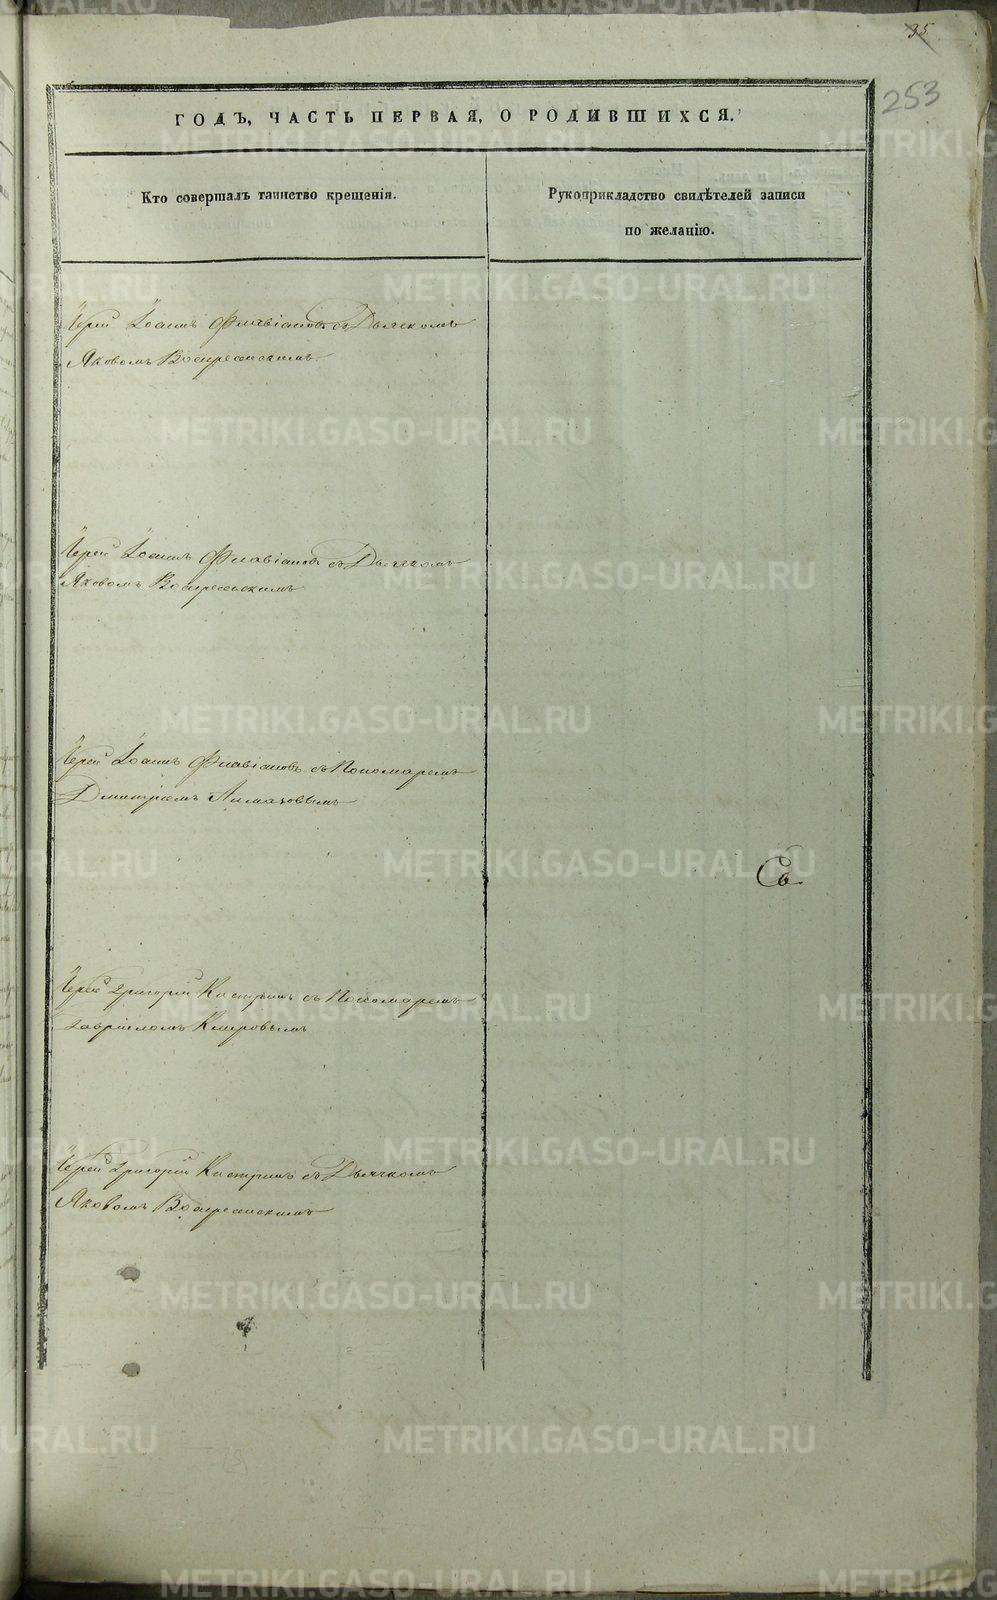 35
253
ГОДЪ, ЧАСТЬ ПЕРВАЯ, О РОДИВШИХСЯ.
Кто совершалъ таинство крещенія.
Рукоприкладство свидѣтелей записи
по желанію.
Іерей Іоаннъ Флавіановъ съ Дьячкомъ
Яковомъ Воскресенскимъ
Іерей Іоаннъ Флавіановъ съ Дьячкомъ
Яковомъ Воскресенскимъ
Іерей Іоаннъ Флавіановъ съ Пономаремъ
Дмитріемъ
Со
Іерей Григорій Кастринъ съ Пономаремъ
Гавріиломъ Кипровымъ
Іерей Григорій Кастринъ съ Дьячкомъ
Яковомъ Воскресенскимъ
METRIKI.GASO-URAL.RU